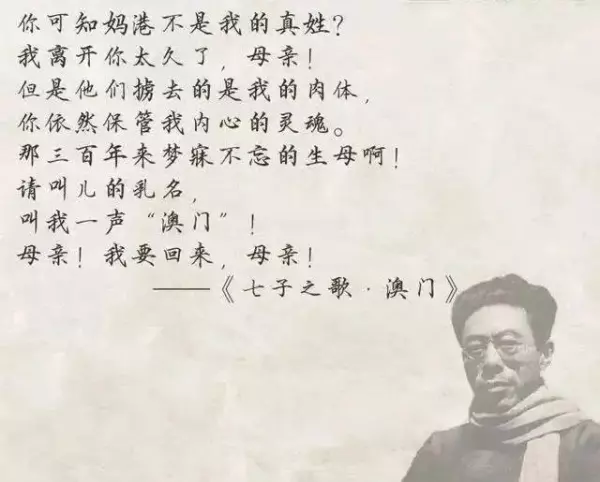 你可知妈港不是我的真姓?
我离开你太久了,母亲!
但是他们掳去的是我的肉体,
你依然保管我内心的灵魂。
那三百年来梦寐不忘的生母啊!
请叫儿的乳名,
叫我一声“澳门”!
母亲!我要回来,母亲!
——《七子之歌·澳门》